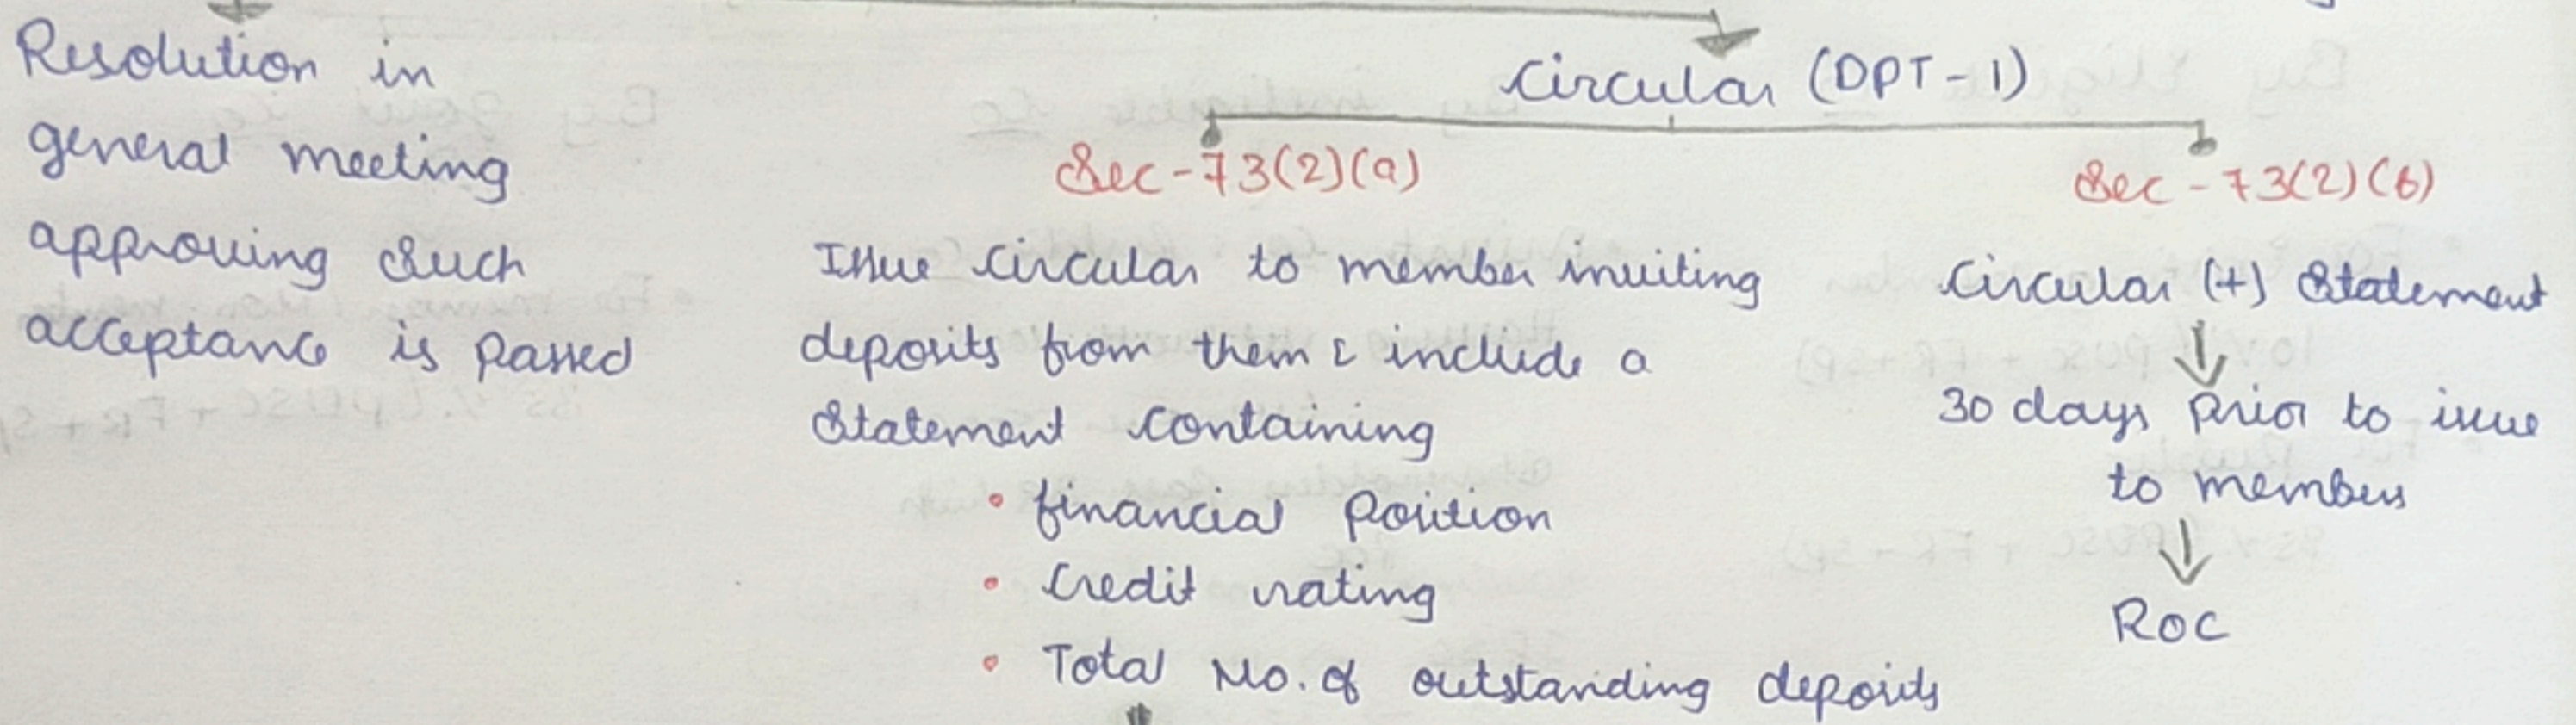 Resolution in
general meeting
approving such
acceptance is passed
Circular (DPT-1)
Sec-73(2)(a)
Issue circular to member inviting
deposits from them & include a
Statement containing
• financial Position
• Credit rating
• Total No. of outstanding deposits
Sec-73(2)(b)
Circular (+) Statement
30 days prior to issue
to members
ROC